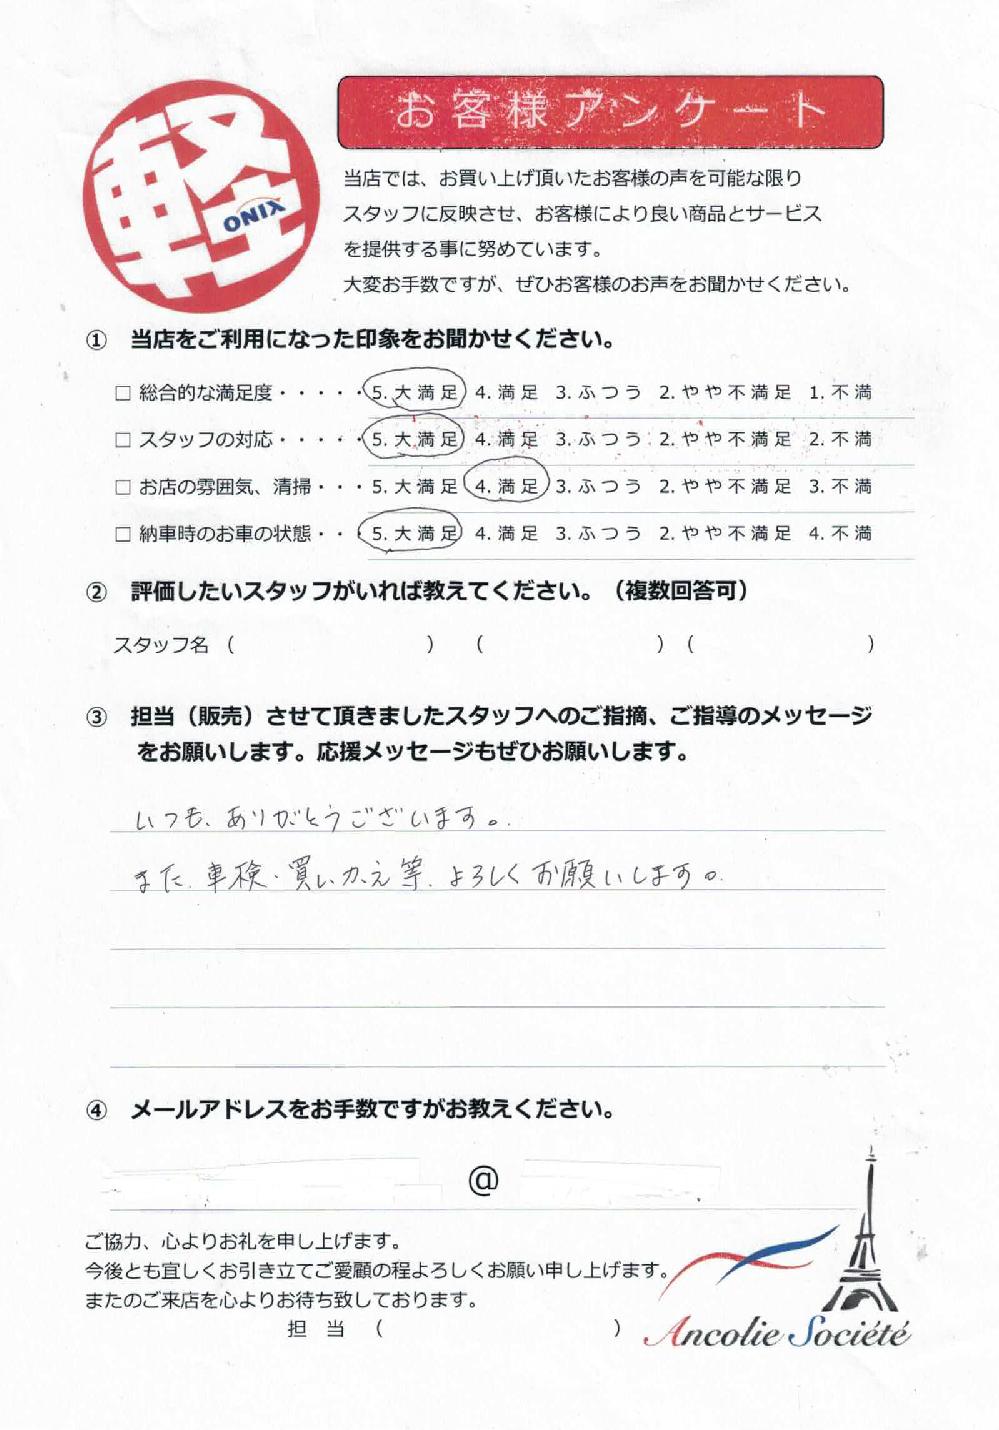 お客様アンケート
軽
ONIX
当店では、お買い上げ頂いたお客様の声を可能な限り
スタッフに反映させ、お客様により良い商品とサービス
を提供する事に努めています。
大変お手数ですが、ぜひお客様のお声をお聞かせください。
① 当店をご利用になった印象をお聞かせください。
□ 総合的な満足度・・・・・5. 大満足 4. 満足 3. ふつう 2. やや不満足 1. 不満
□ スタッフの対応・・・・・5. 大満足 4. 満足 3. ふつう 2. やや不満足 2. 不満
□ お店の雰囲気、清掃・・・5. 大満足 4. 満足 3. ふつう 2. やや不満足 3. 不満
□ 納車時のお車の状態・・・5. 大満足 4. 満足 3. ふつう 2. やや不満足 4. 不満
② 評価したいスタッフがいれば教えてください。（複数回答可）
スタッフ名 （ ） （ ） （ ）
③ 担当（販売）させて頂きましたスタッフへのご指摘、ご指導のメッセージ
をお願いします。応援メッセージもぜひお願いします。
いつも、ありがとうございます。
また、車検・買いかえ等、よろしくお願いします。
④ メールアドレスをお手数ですがお教えください。
@
ご協力、心よりお礼を申し上げます。
今後とも宜しくお引き立てご愛顧の程よろしくお願い申し上げます。
またのご来店を心よりお待ち致しております。
担 当 （ ）
Ancolie Société